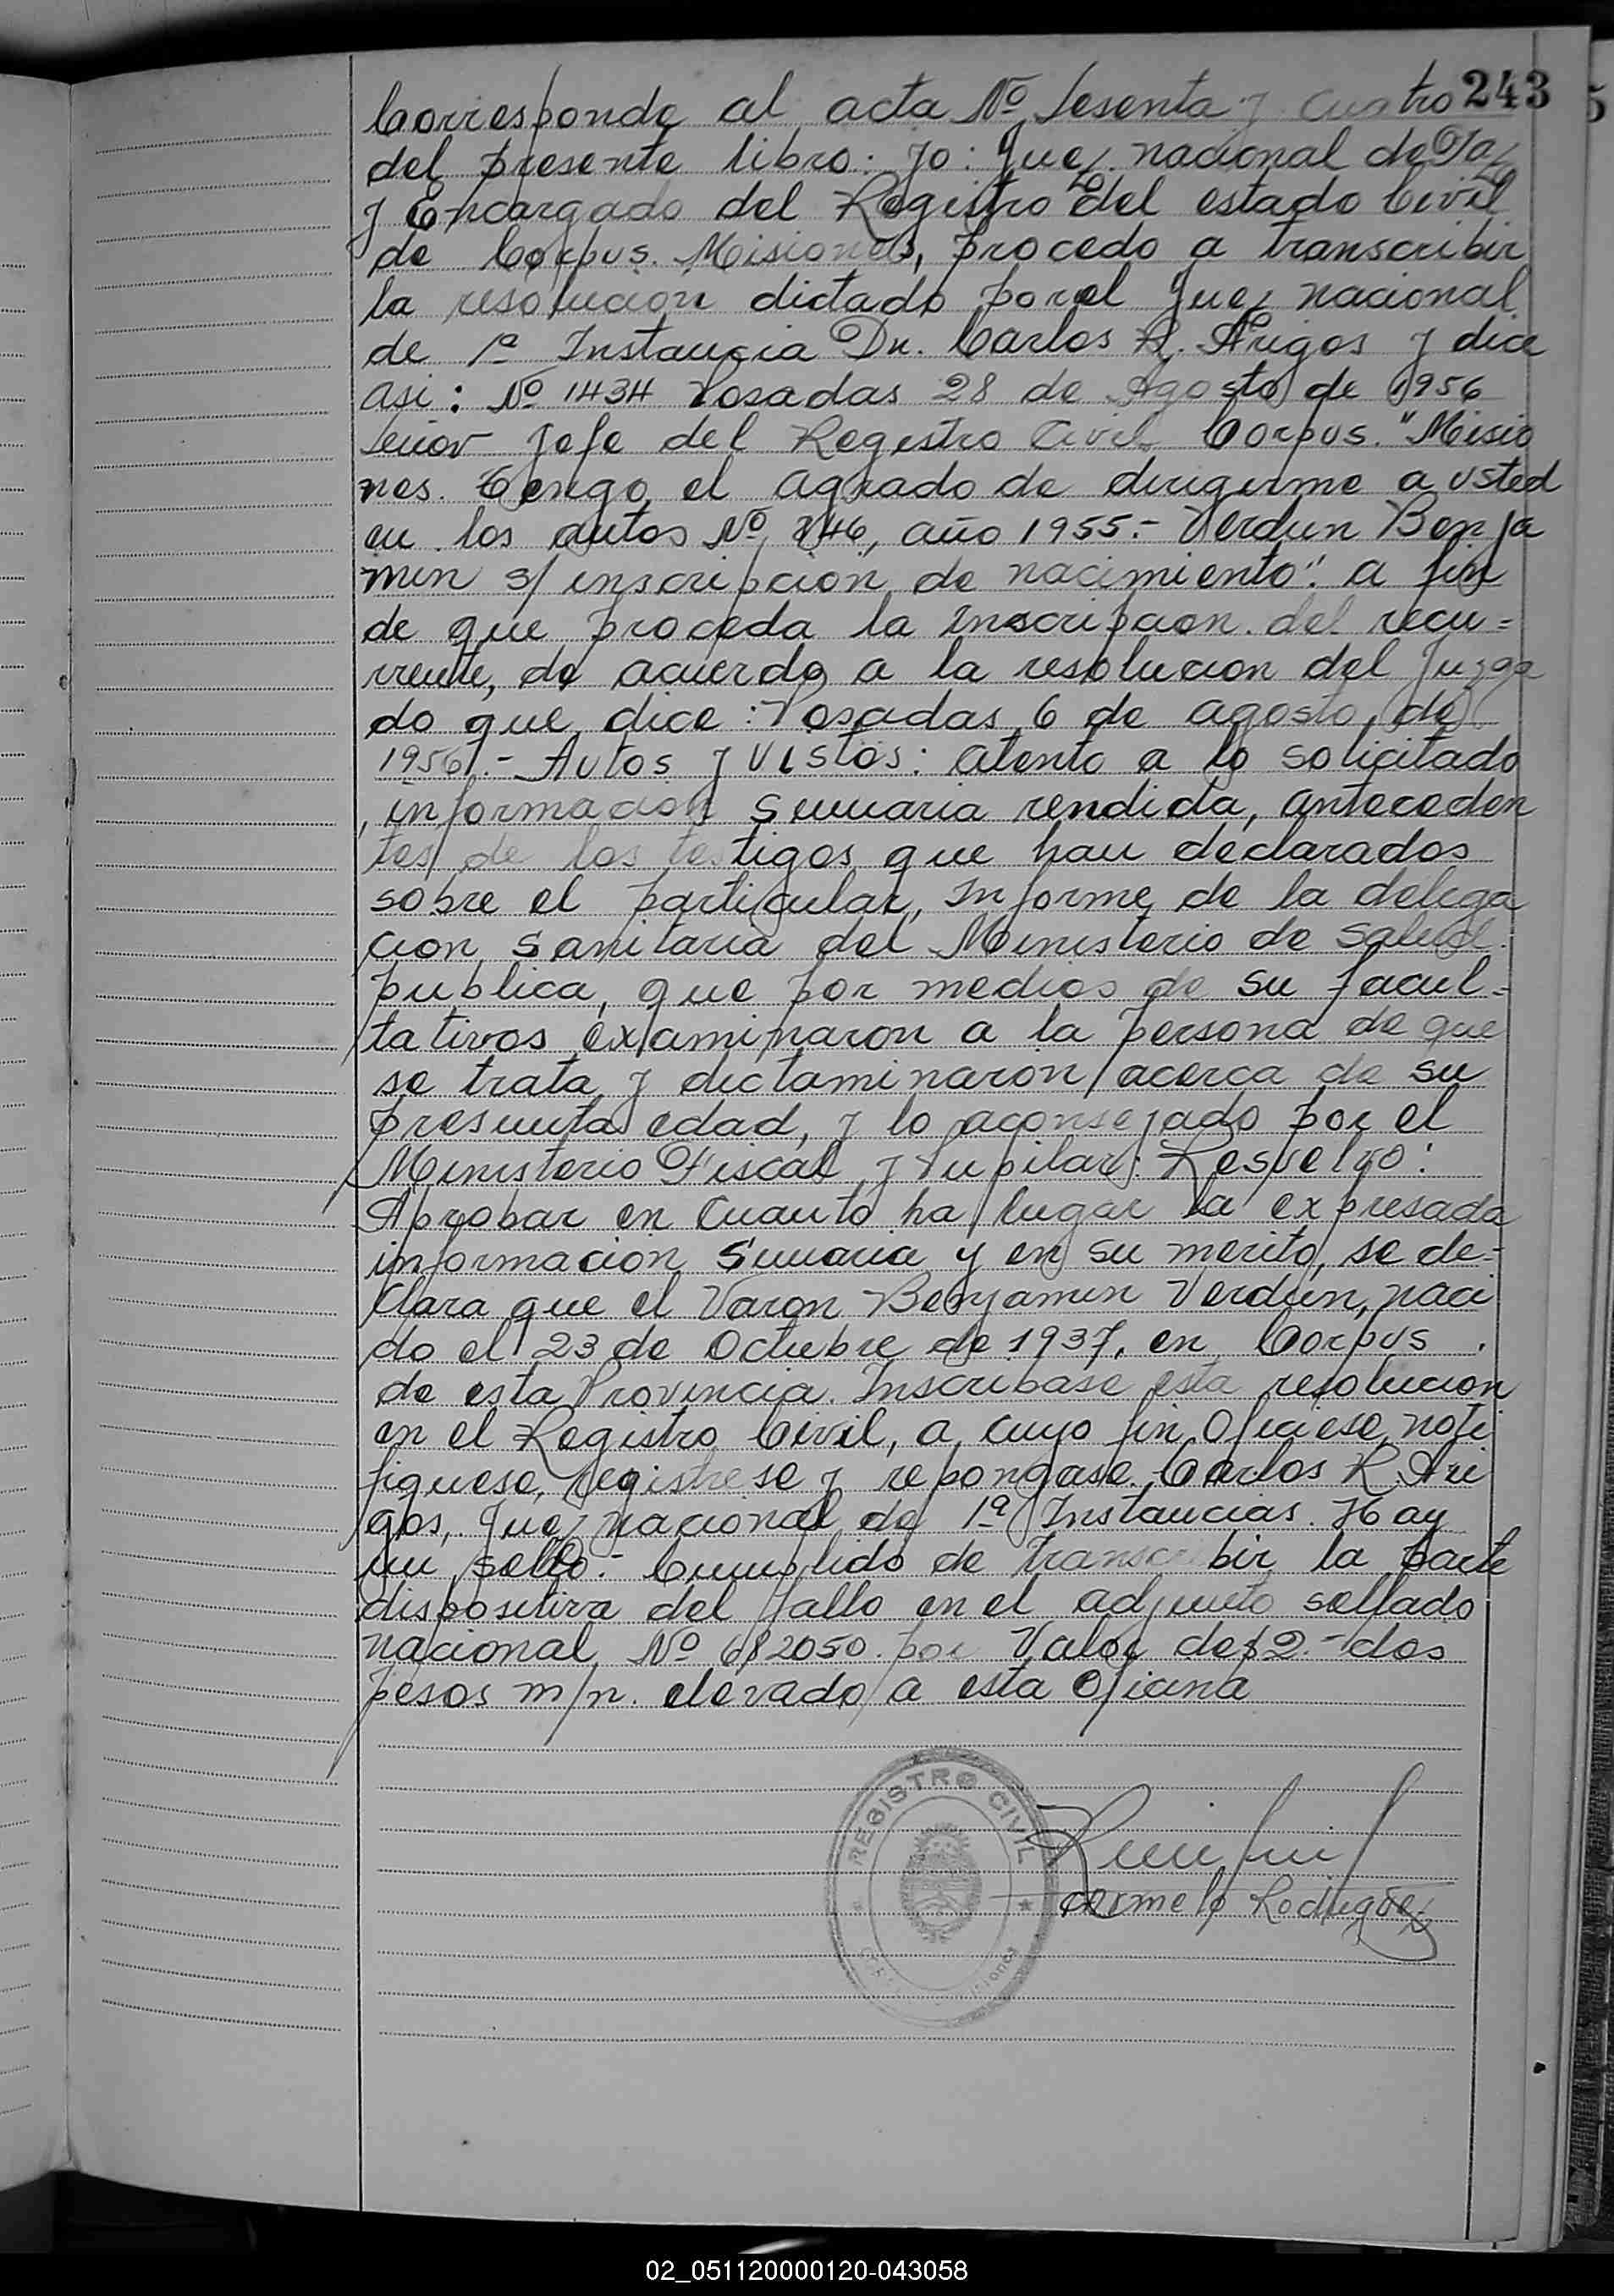 243
Corresponde al acta Nº Sesenta y Cuatro
del presente libro: yo: Juez nacional de Paz
y Encargado del Registro del estado Civil
de Corpus. Misiones, procedo a transcribir
la resolucion dictado por el Juez nacional
de 1ª Instancia Dn. Carlos R. Arigos y dice
asi: Nº 1434 Posadas 28 de Agosto de 1956
Señor Jefe del Registro Civil Corpus. "Misio
nes. Tengo el agrado de dirigirme a usted
en los autos Nº 846, año 1955.- Verdun Benja
min s/ inscripcion de nacimiento". a fin
de que proceda la inscripcion del recu=
rrente, de acuerdo a la resolucion del Juzga
do que dice: Posadas 6 de agosto de
1956.- Autos y Vistos: atento a lo solicitado
, informacion Sumaria rendida, anteceden
tes de los testigos que han declarados
sobre el particular, Informe de la delega
cion Sanitaria del Ministerio de Salud
publica, que por medios de su facul=
tativos examinaron a la persona de que
se trata y dictaminaron acerca de su
presunta edad, y lo aconsejado por el
Ministerio Fiscal y Pupilar: Resuelvo:
Aprobar en Cuanto ha lugar la expresada
informacion Sumaria y en su merito, se de-
clara que el Varon Benjamin Verdun, naci
do el 23 de Octubre de 1937, en Corpus
de esta Provincia. Inscribase esta resolucion
en el Registro Civil, a cuyo fin Oficiese, noti
fiquese, registrese y repongase. Carlos R. Ari
gos, Juez nacional de 1ª Instancias. Hay
un sello.- Cumplido de transcribir la parte
dispositiva del fallo en el adjunto sellado
nacional Nº 682050. por Valor de $2.- dos
pesos m/n. elevado a esta Oficina
REGISTRO CIVIL
Carmelo Rodriguez
02_051120000120-043058